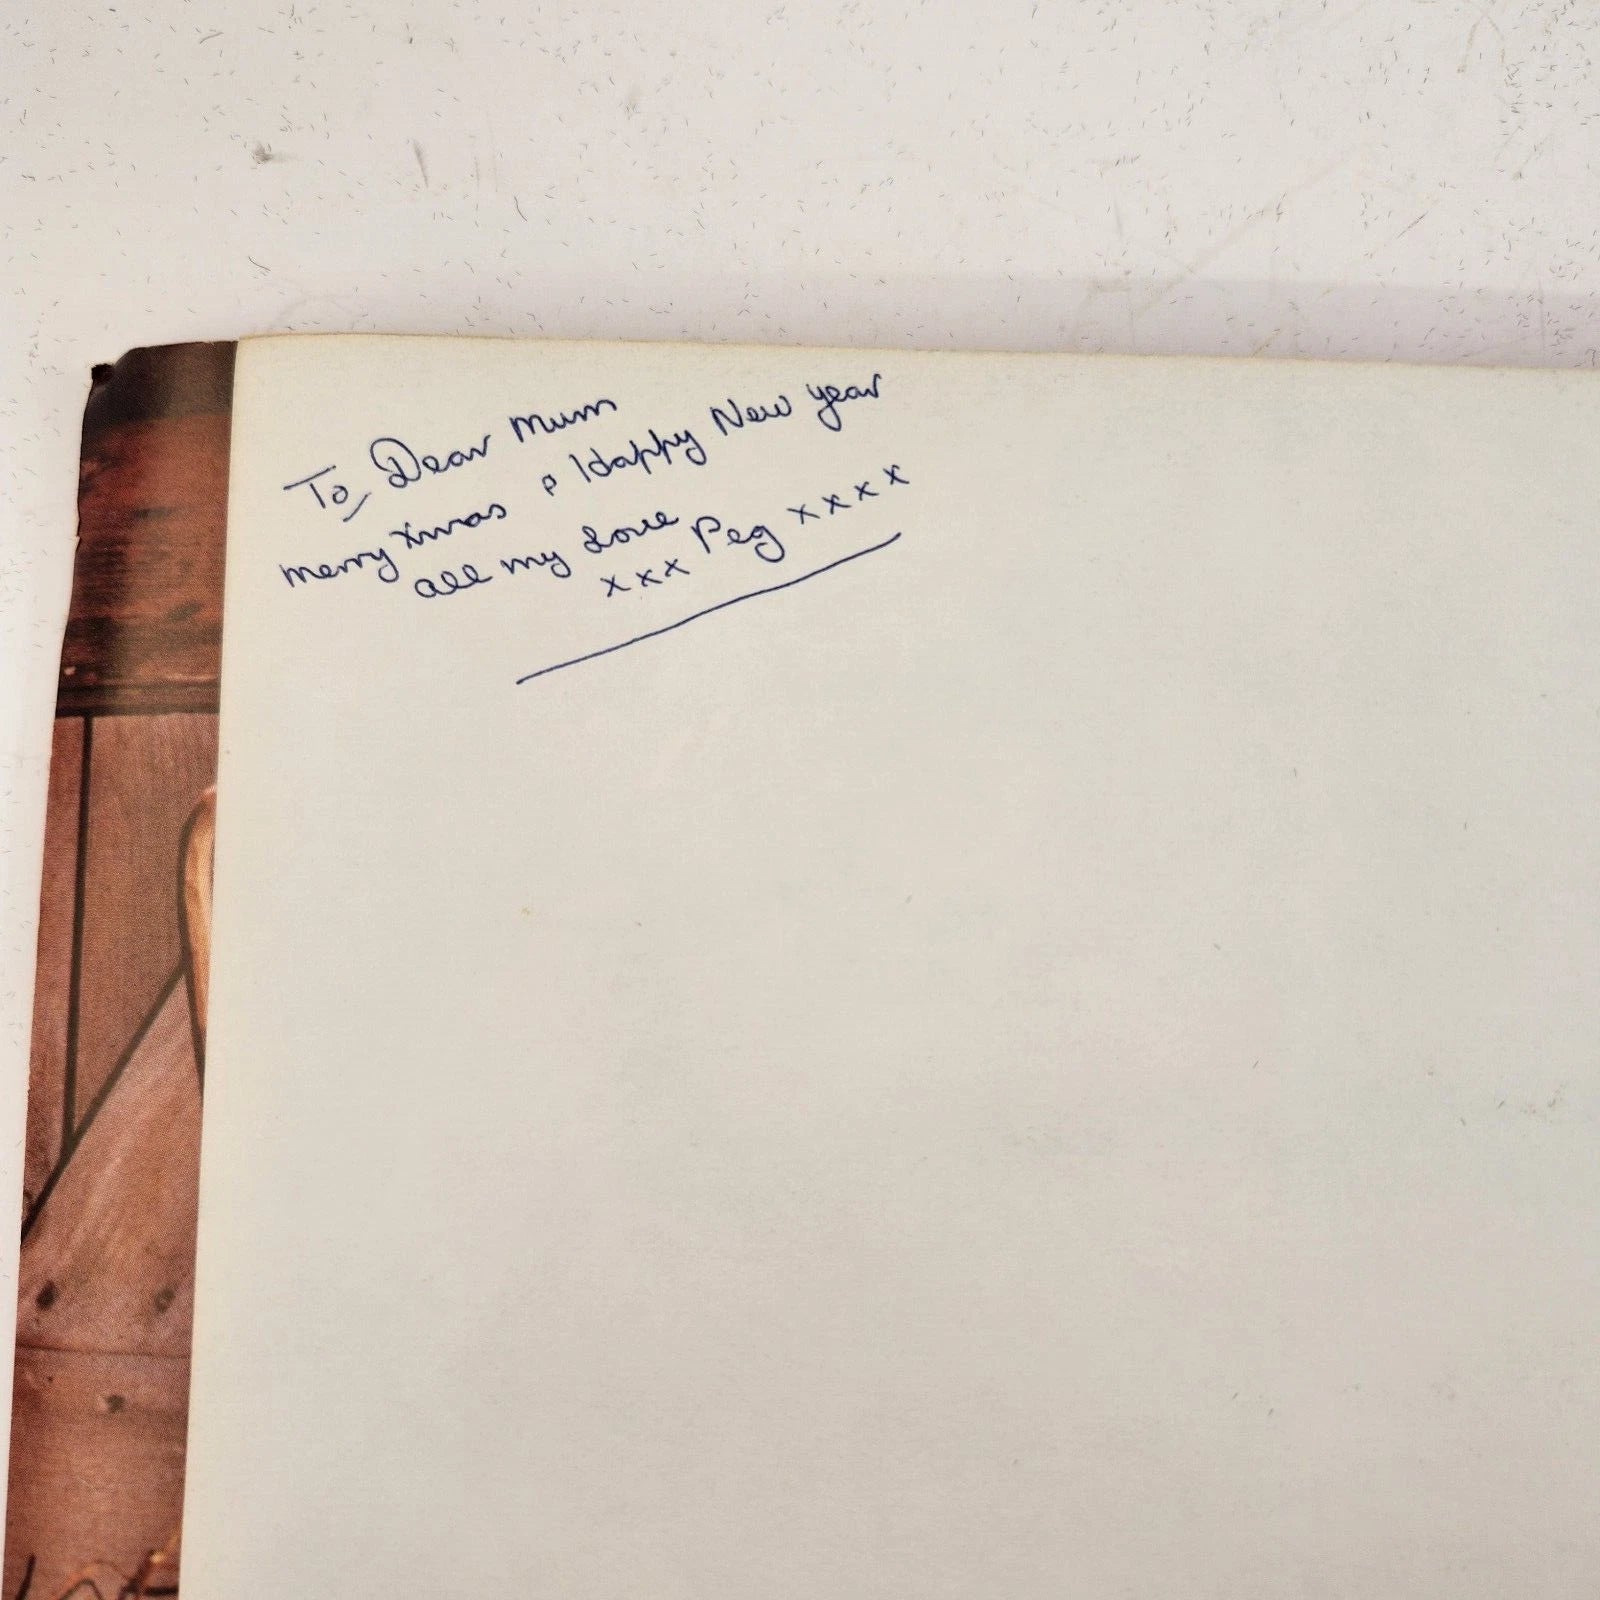 To Dear Mum
merry Xmas & Happy New year
all my Love Peg xxxx
xxx